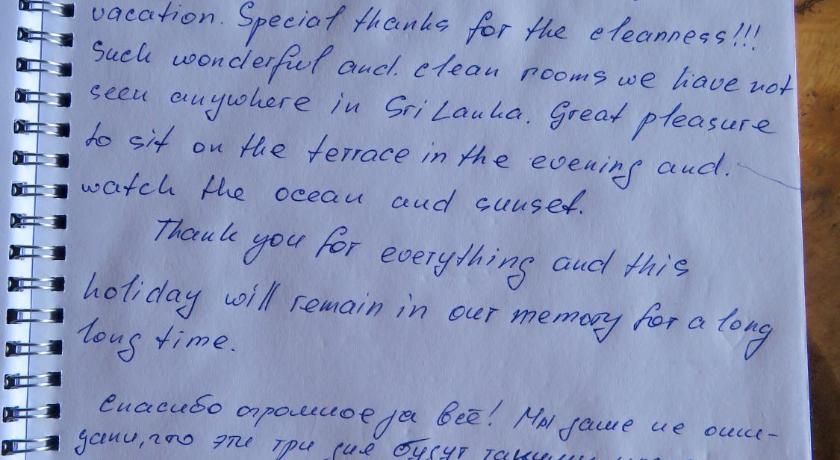 vacation. Special thanks for the cleanness!!!
Such wonderful and. clean rooms we have not
seen anywhere in Sri Lanka. Great pleasure
to sit on the terrace in the evening and.
watch the ocean and sunset.
Thank you for everything and this
holiday will remain in our memory for a long
long time.
Спасибо огромное за всё! Мы даже не ожи-
дали, что эти три дня будут такими